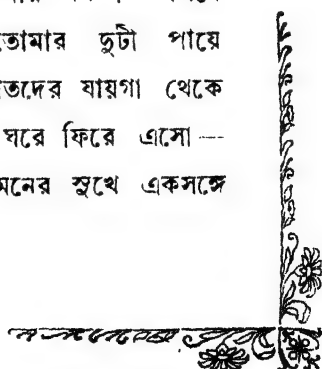 তোমার দুটী পায়ে
তদের যায়গা থেকে
ঘরে ফিরে এসো—
মনের সুখে একসঙ্গে